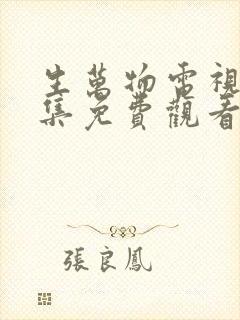 生萬物電視
集免費觀看
張良鳳